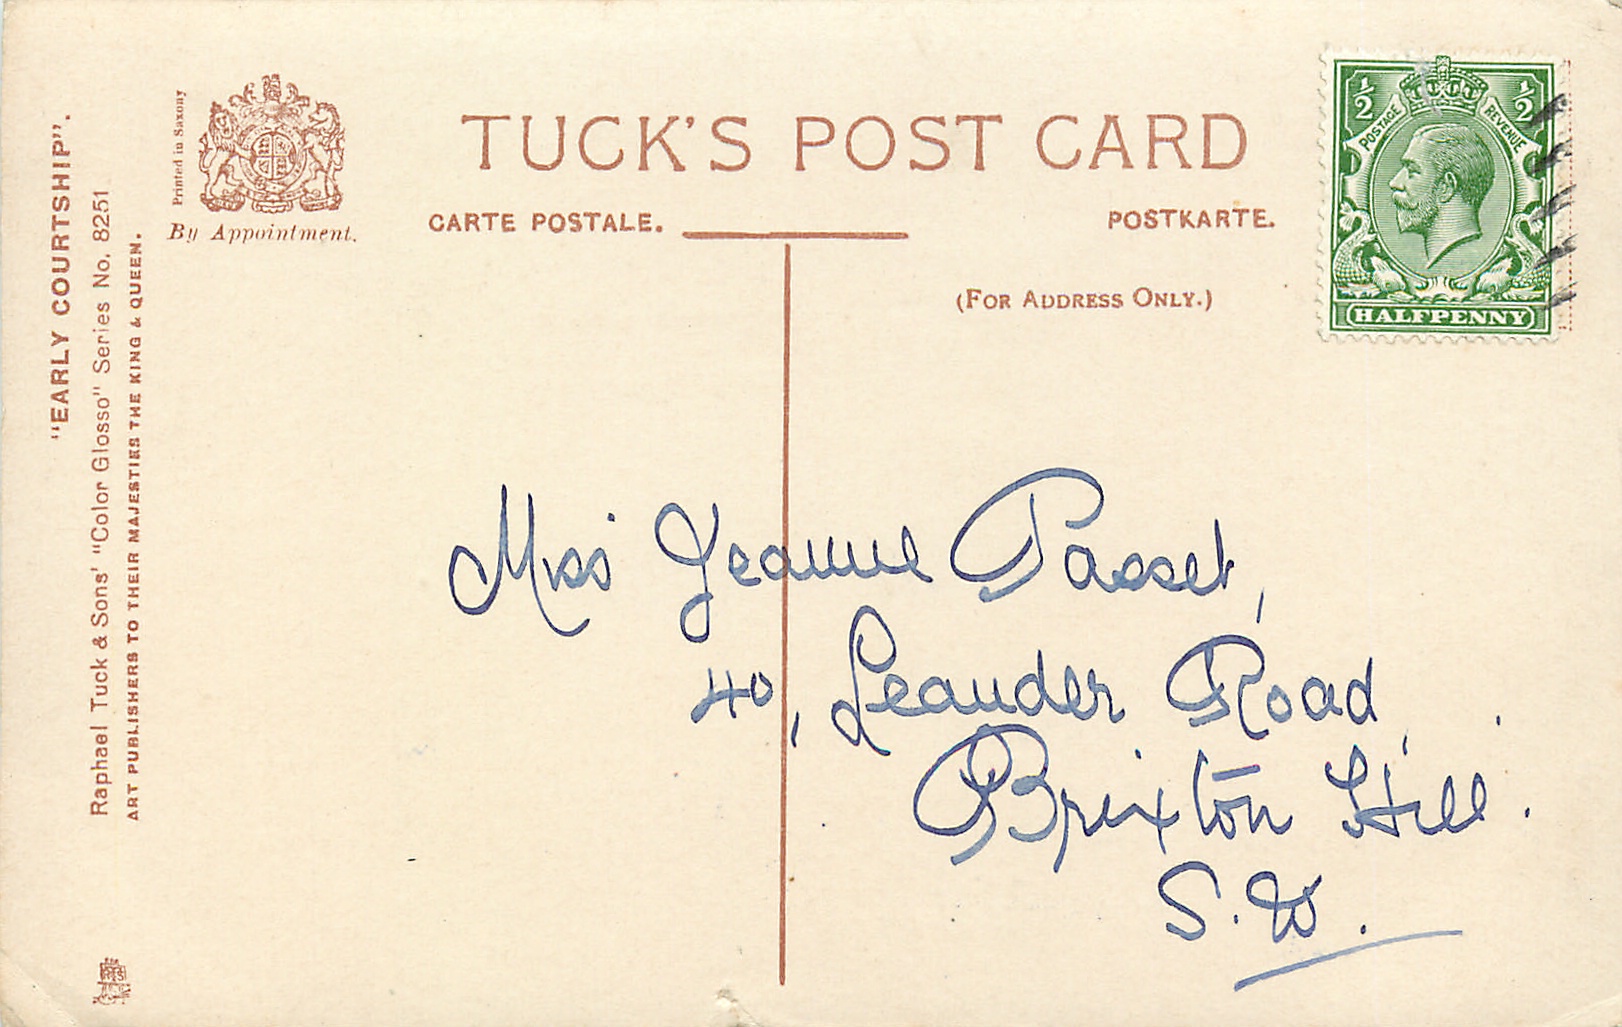 "EARLY COURTSHIP".
Raphael Tuck & Sons' "Color Glosso" Series No. 8251
ART PUBLISHERS TO THEIR MAJESTIES THE KING & QUEEN.
Printed in Saxony
By Appointment.
TUCK'S POST CARD
CARTE POSTALE.
POSTKARTE.
(FOR ADDRESS ONLY.)
½ ½
POSTAGE REVENUE
HALFPENNY
Miss Jeanne Passet,
40, Leander Road,
Brixton Hill.
S.W.